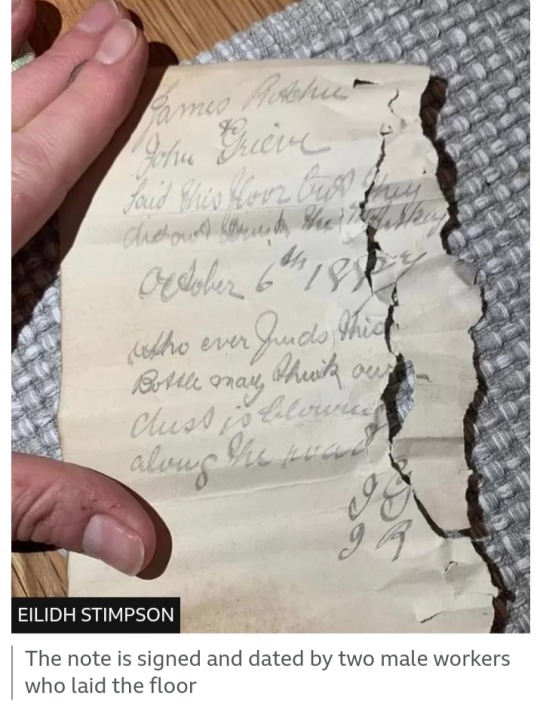 James Ritchie
&
John Grieve
laid this floor but they
did not drink the whisky
October 6th 1887
who ever finds this
Bottle may think our
dust is blowing
along the road
J G
J R
EILIDH STIMPSON
The note is signed and dated by two male workers
who laid the floor